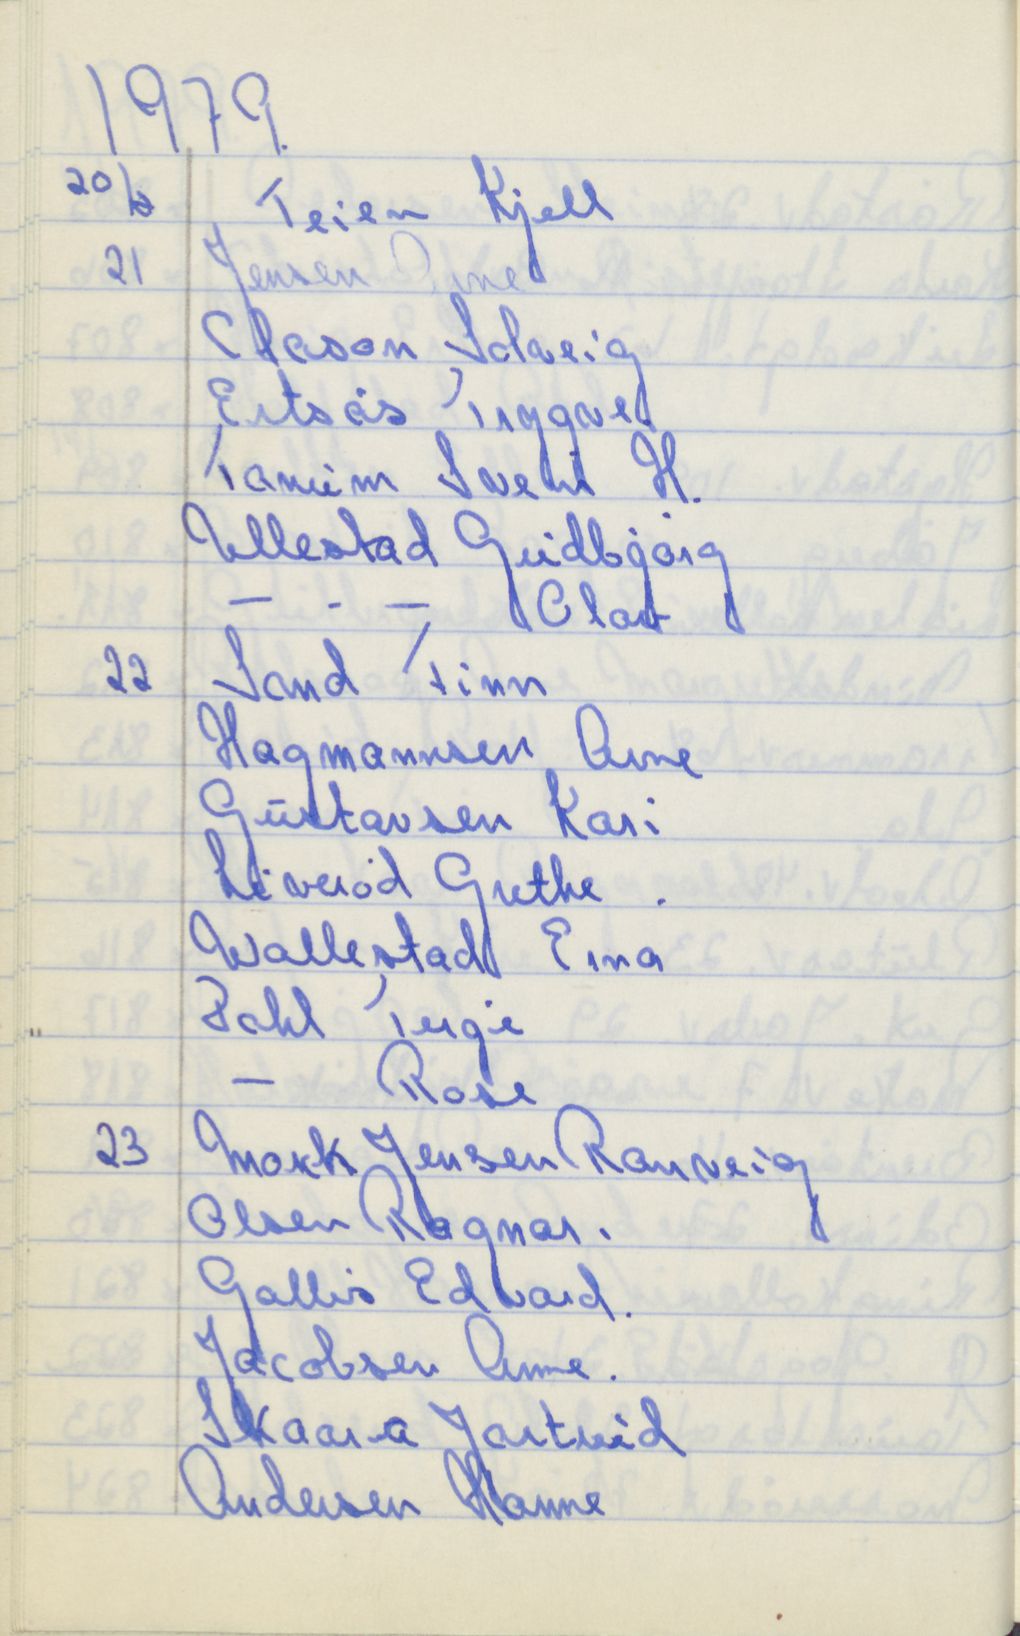 1979.
20/6 Teien Kjell
21 Jensen Arne
Clason Solveig
Ertsås Tryggve
Tanum Svein H.
Ullestad Gudbjørg
— - — Olav
22 Sand Finn
Hagmannsen Arne
Gustavsen Kari
Liverød Grethe.
Wallestad Eina
Dahl Terje
— Rose
23 Mørk Jensen Rannveig
Olsen Ragnar.
Gallis Edvard.
Jacobsen Anne.
Skaara Jartrud
Andersen Hanne